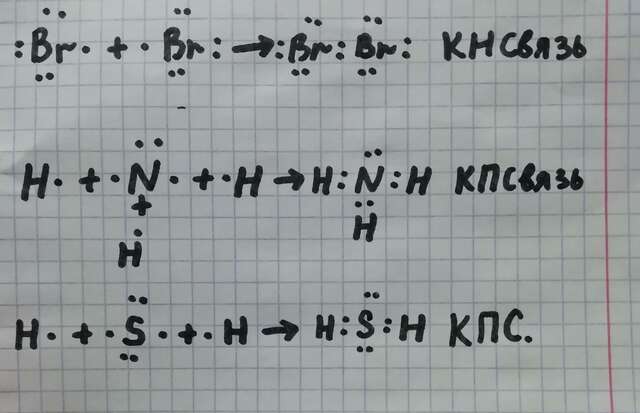 :Br· + ·Br: → :Br:Br: КНСвязь
H· + ·N· + ·H → H:N:H КПСвязь
+
H H
H· + ·S· + ·H → H:S:H КПС.